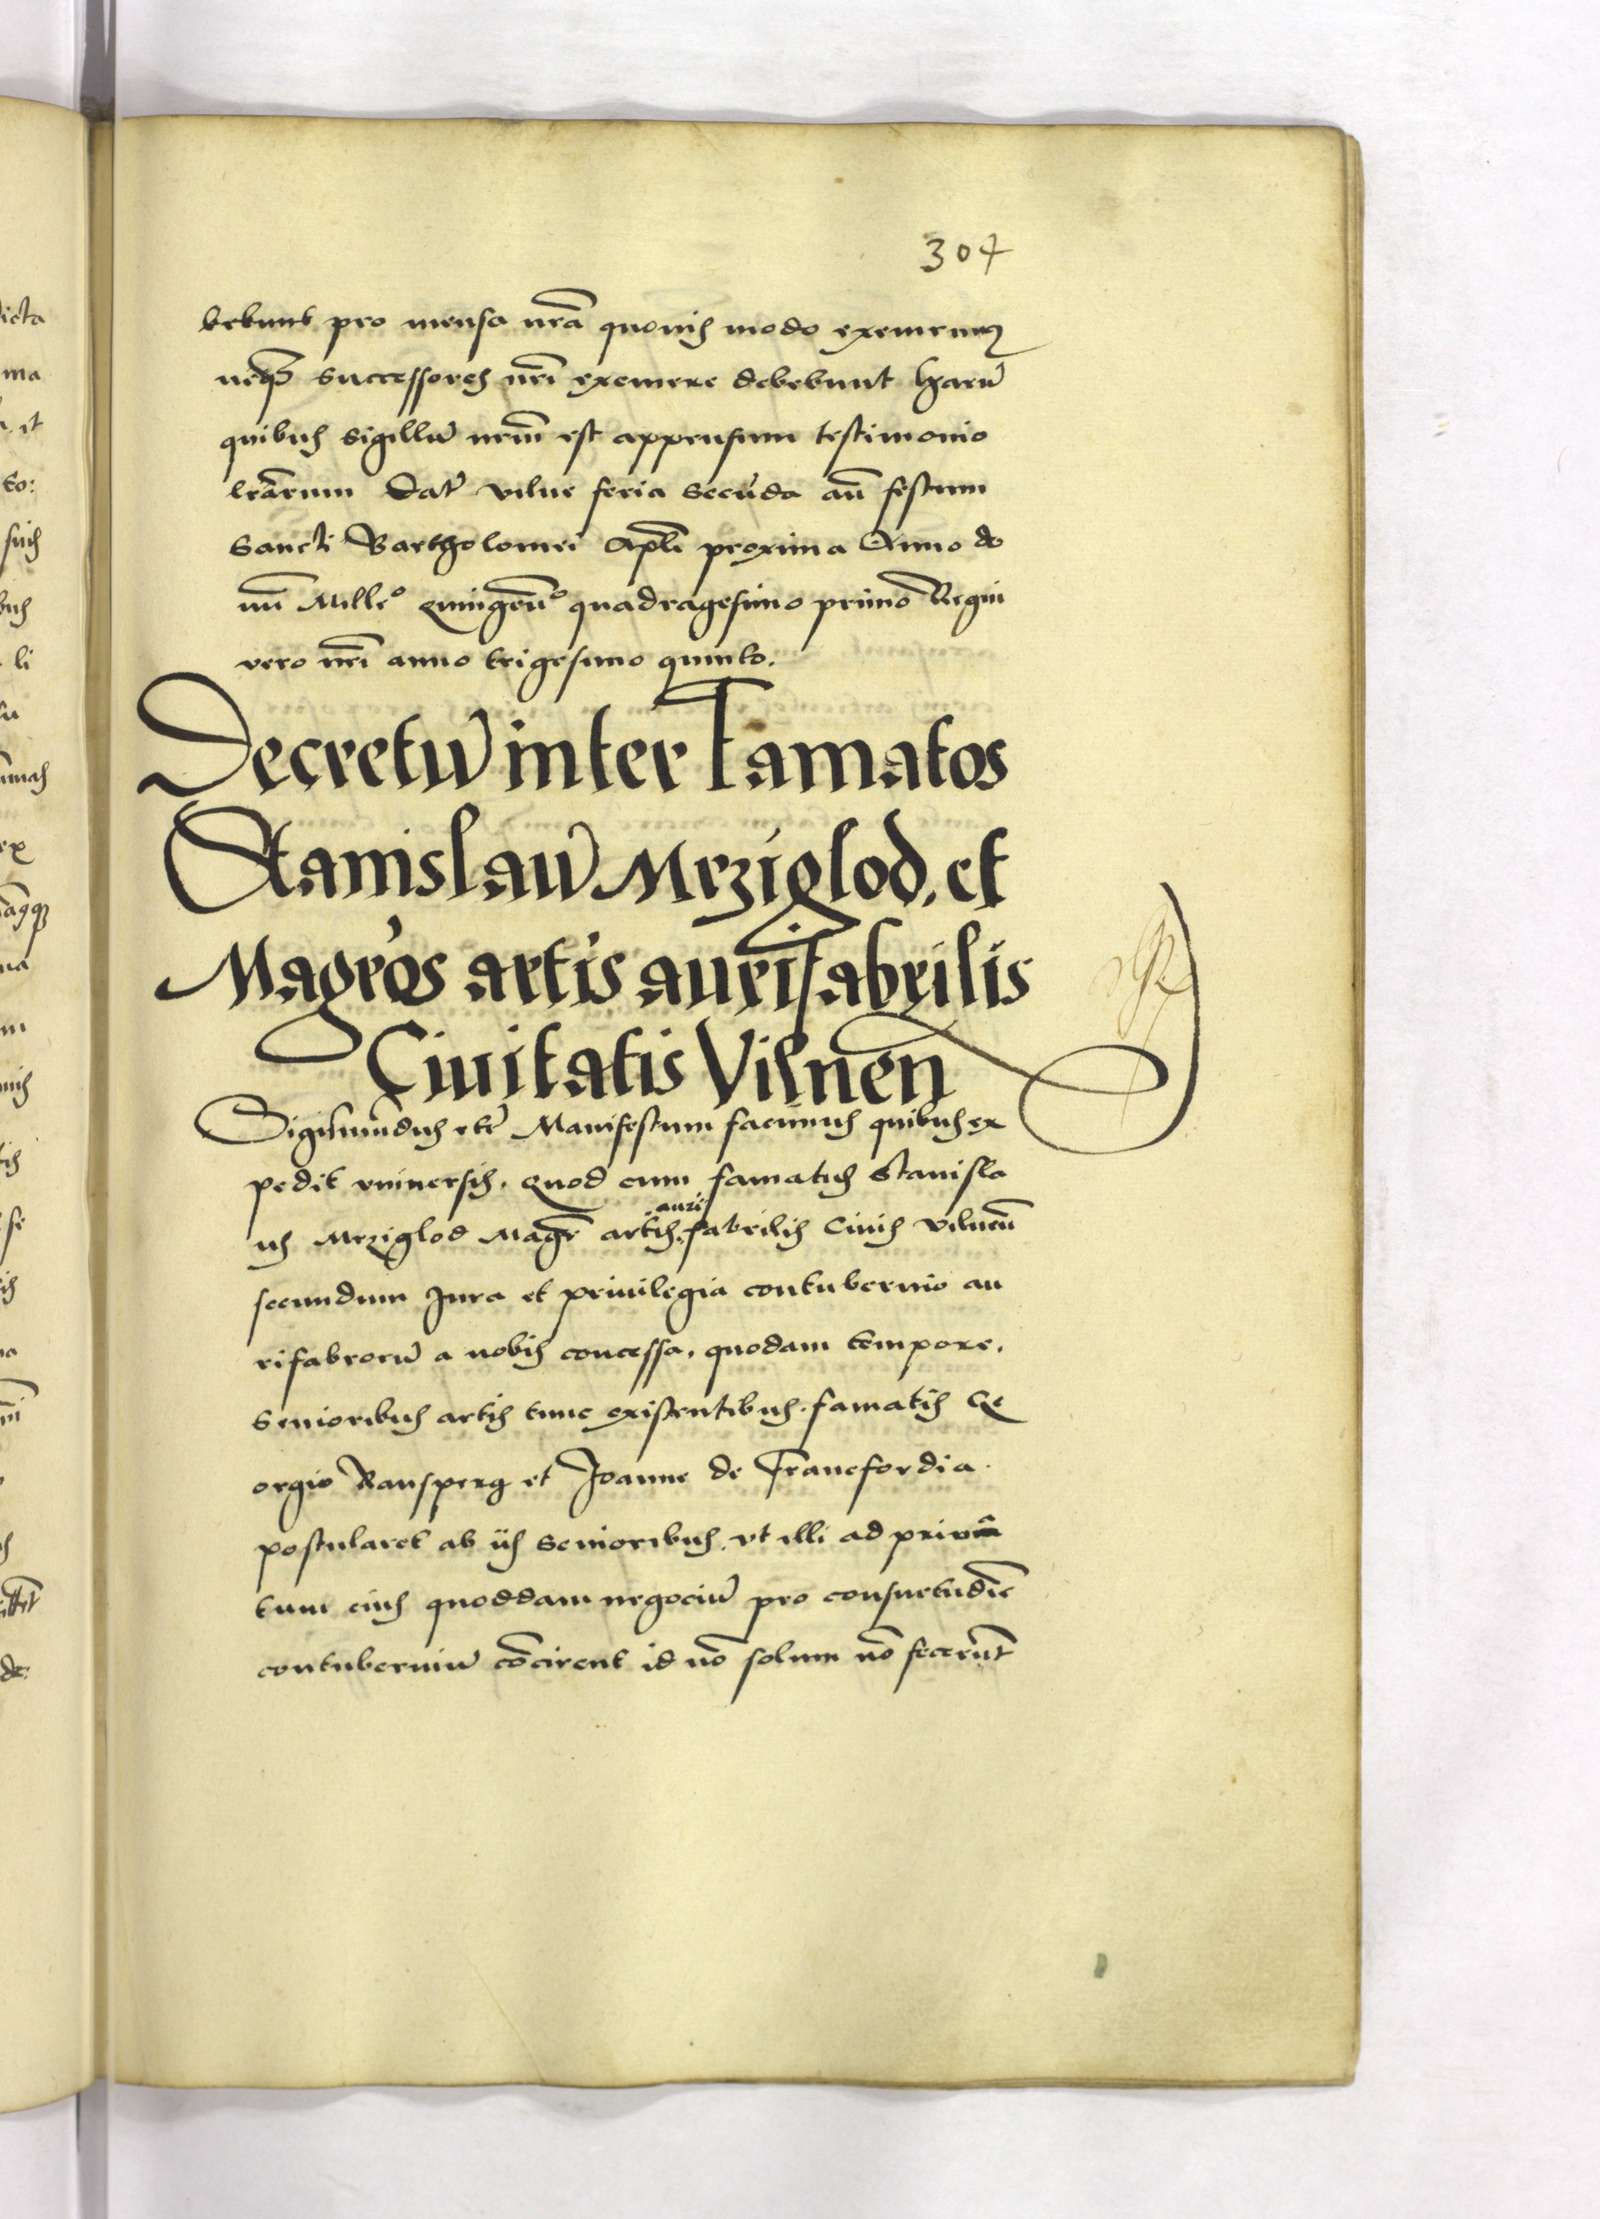 304
bebunt pro mensa nrā quouis modo exememus
neqз successores nrī exemere debebunt harū
quibus sigillū nrm̄ est appensum testimonio
lrārum Dat̄ vilne feria secūda an̄ festum
Sancti Bartholomei Apl̄i proxima Anno do
mī Mill̄o Quingen̄o quadragesimo primo Regni
vero nrī anno trigesimo quinto.
Decretū inter Famatos
Stanislaū Mrziglod, et
Magr̄os artis aurifabrilis
Ciuitatis Vilnen̄
Sigismūdus etc̄ Manifestum facimus quibus ex
pedit vniuersis. Quod cum famatus Stanisla
us Mrziglod Magr̄ artis aurifabrilis Ciuis vilneñ
secundum Jura et priuilegia contubernio au
rifabrorū a nobis concessa. quodam tempore.
Senioribus artis tunc existentibus. famatis Ge
orgio Ransperg et Joanne de Francfordia.
postularet ab iis Senioribus. vt illi ad priua
tum eius quoddam negociū pro consuetudīe
contuberniū cōcirent id nō solum nō fecerūt